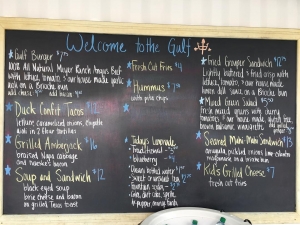 Welcome to the Gulf
Gulf Burger $7.75
100% All Natural Meyer Ranch Angus Beef
with lettuce, tomato & our house made garlic
aioli on a Brioche bun
add cheese add bacon
Duck Confit Tacos $12
lettuce, caramelized onions, chipotle
aioli in 2 flour tortillas
Grilled Amberjack $16
braised Napa cabbage
and Neuske's bacon
Soup and Sandwich $12
black eyed soup
brie cheese and bacon
on grilled Texas toast
Fresh Cut Fries $4
Hummus $7
with pita chips
Todays Lemonade
traditional
blueberry
Sweet or unsweet tea
fountain soda
coke, diet coke, sprite
Fried Grouper Sandwich $12
lightly battered & fried crisp with
lettuce, tomato & our house made
aioli sauce on a Brioche bun
Mixed Green Salad $5.50
mixed greens with cherry
tomatoes & our house made
brown balsamic vinaigrette
Seared Mahi Mahi Sandwich $13
avocado, pickled onions, lime cilantro
mayonnaise, on a brioche bun
Kid's Grilled Cheese $7
fresh cut fries